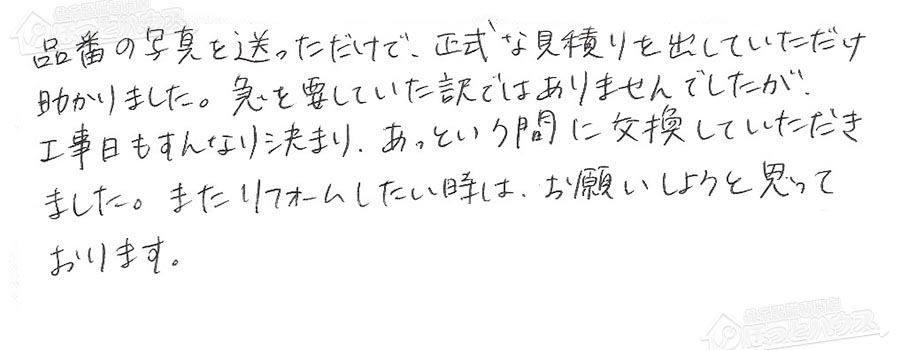 品番の写真を送っただけで、正式な見積りを出していただけ
助かりました。急を要していた訳ではありませんでしたが、
工事日もすんなり決まり、あっという間に交換していただき
ました。またリフォームしたい時は、お願いしようと思って
おります。
ほっとハウス